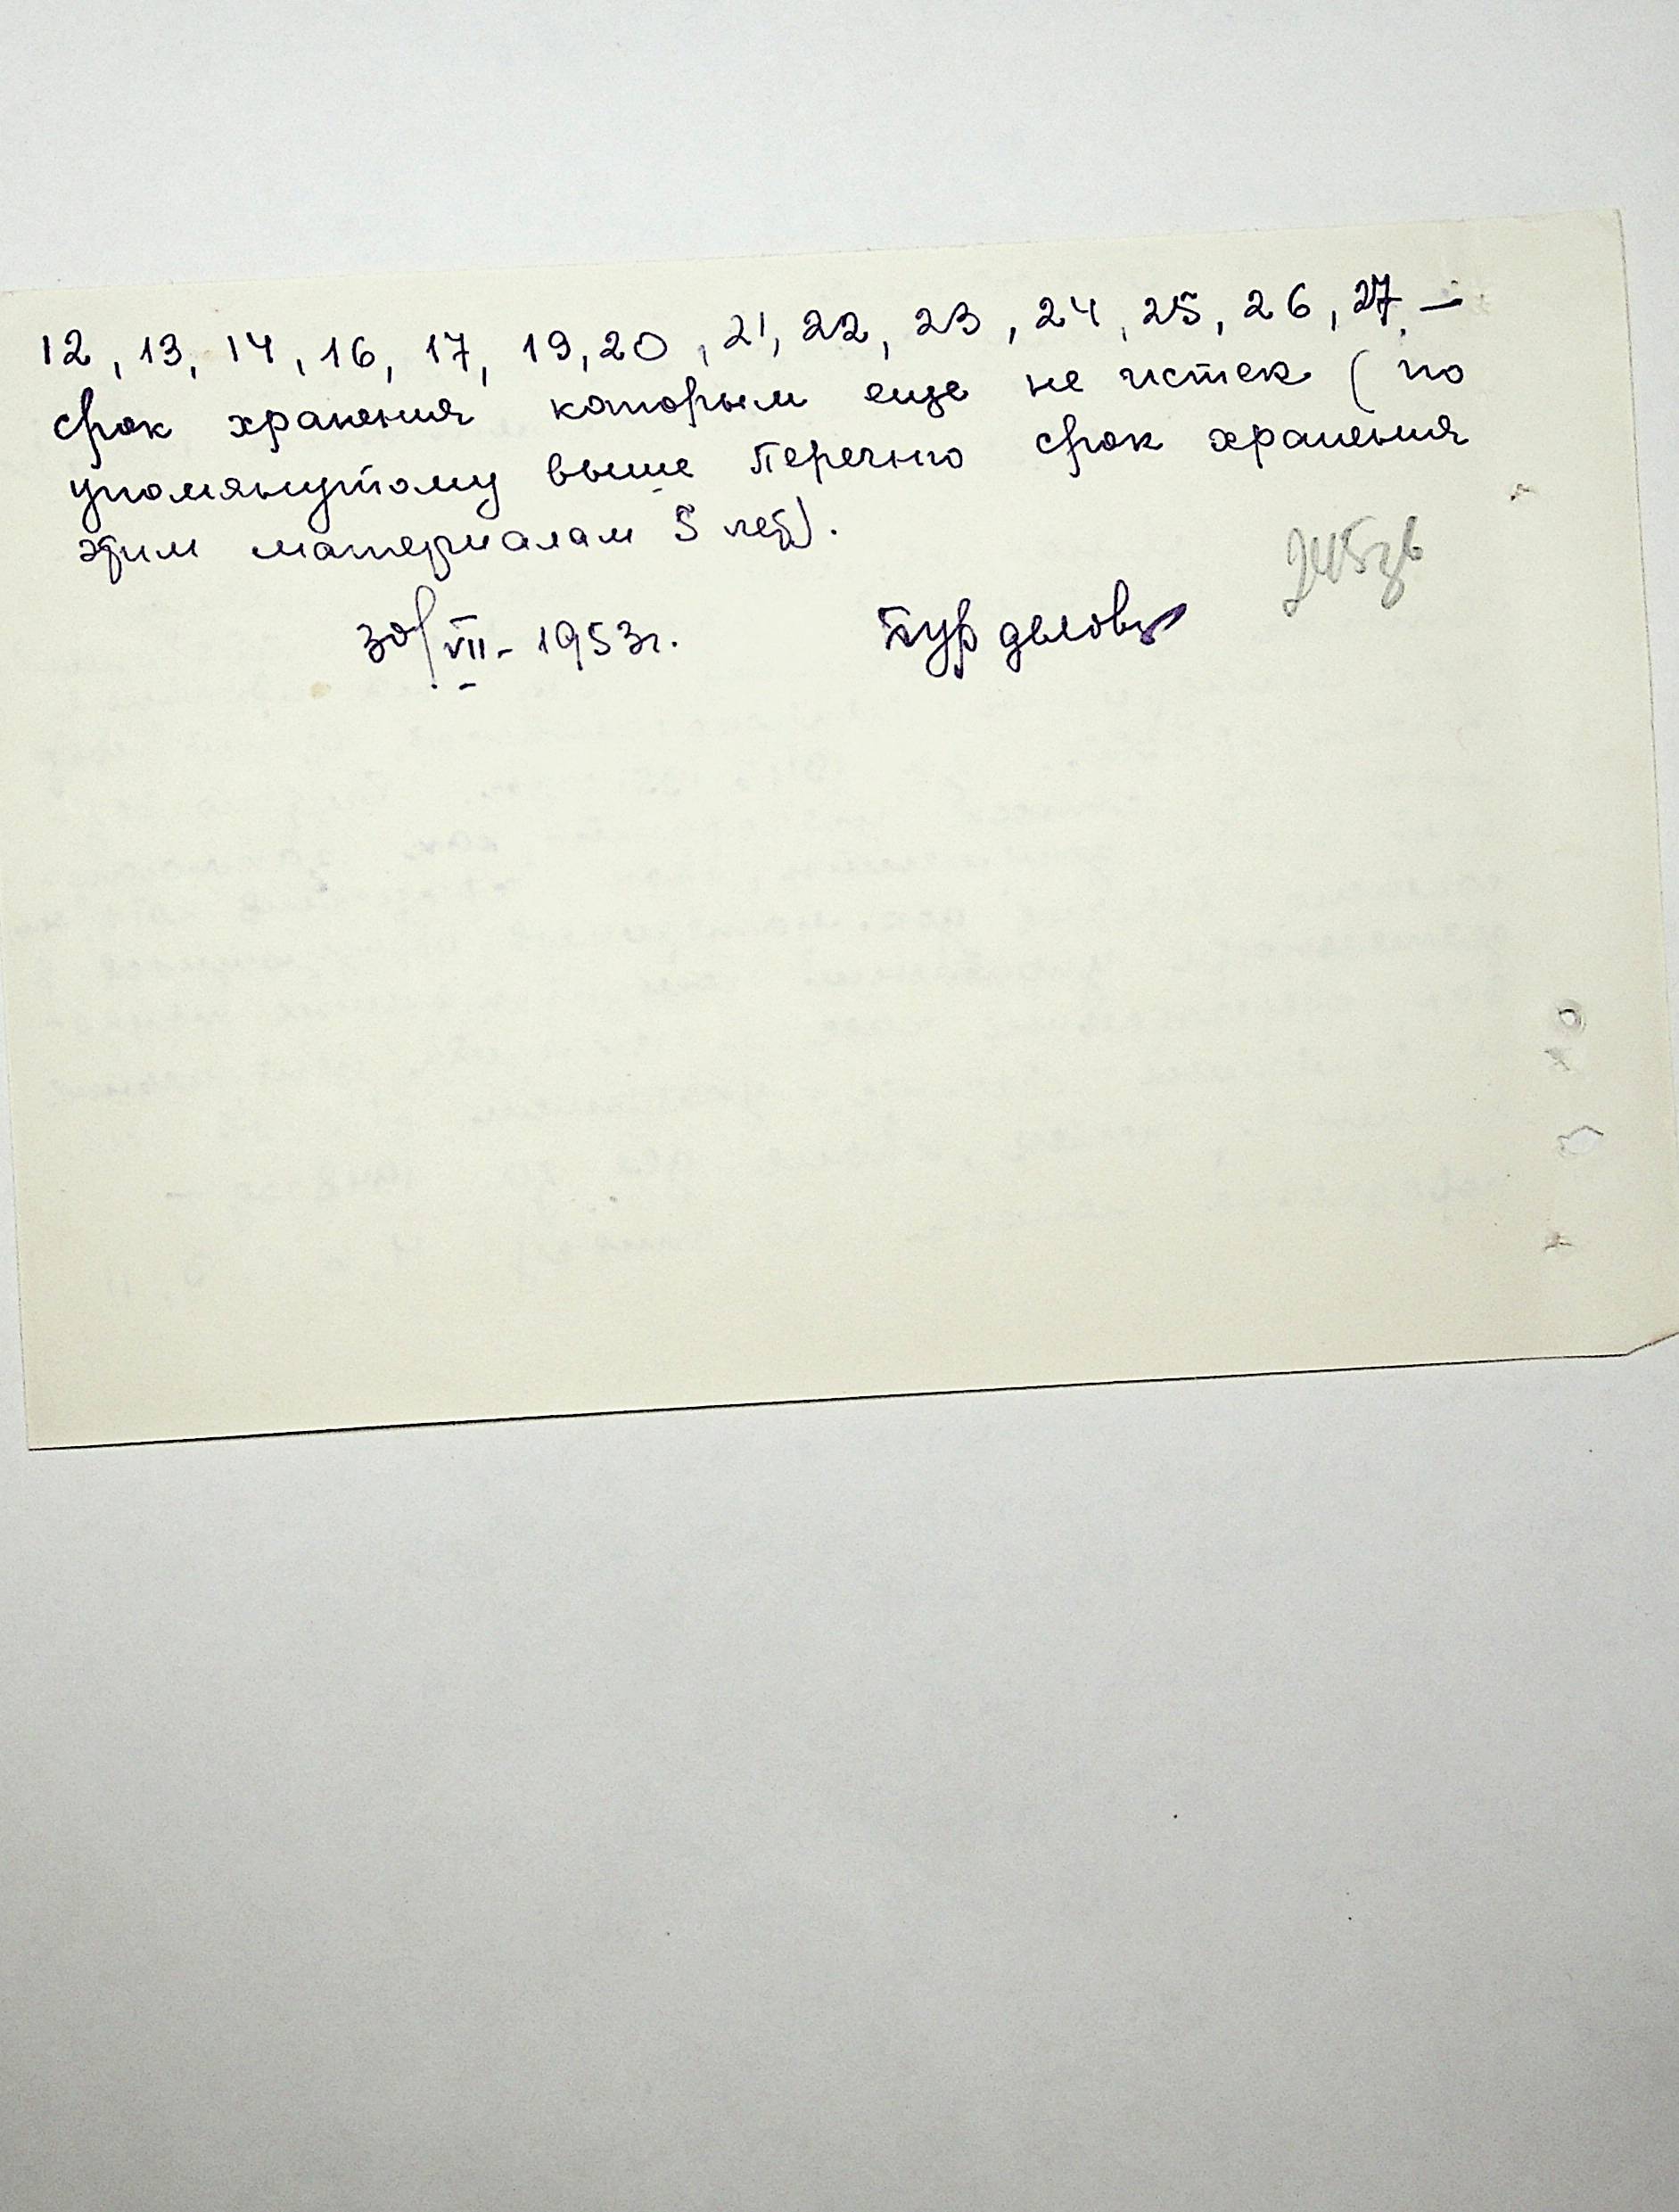 12, 13, 14, 16, 17, 19, 20, 21, 22, 23, 24, 25, 26, 27. —
срок хранения которым еще не истек (по
упомянутому выше Перечню срок хранения
этим материалам 5 лет).
30/VII - 1953г.
245зв